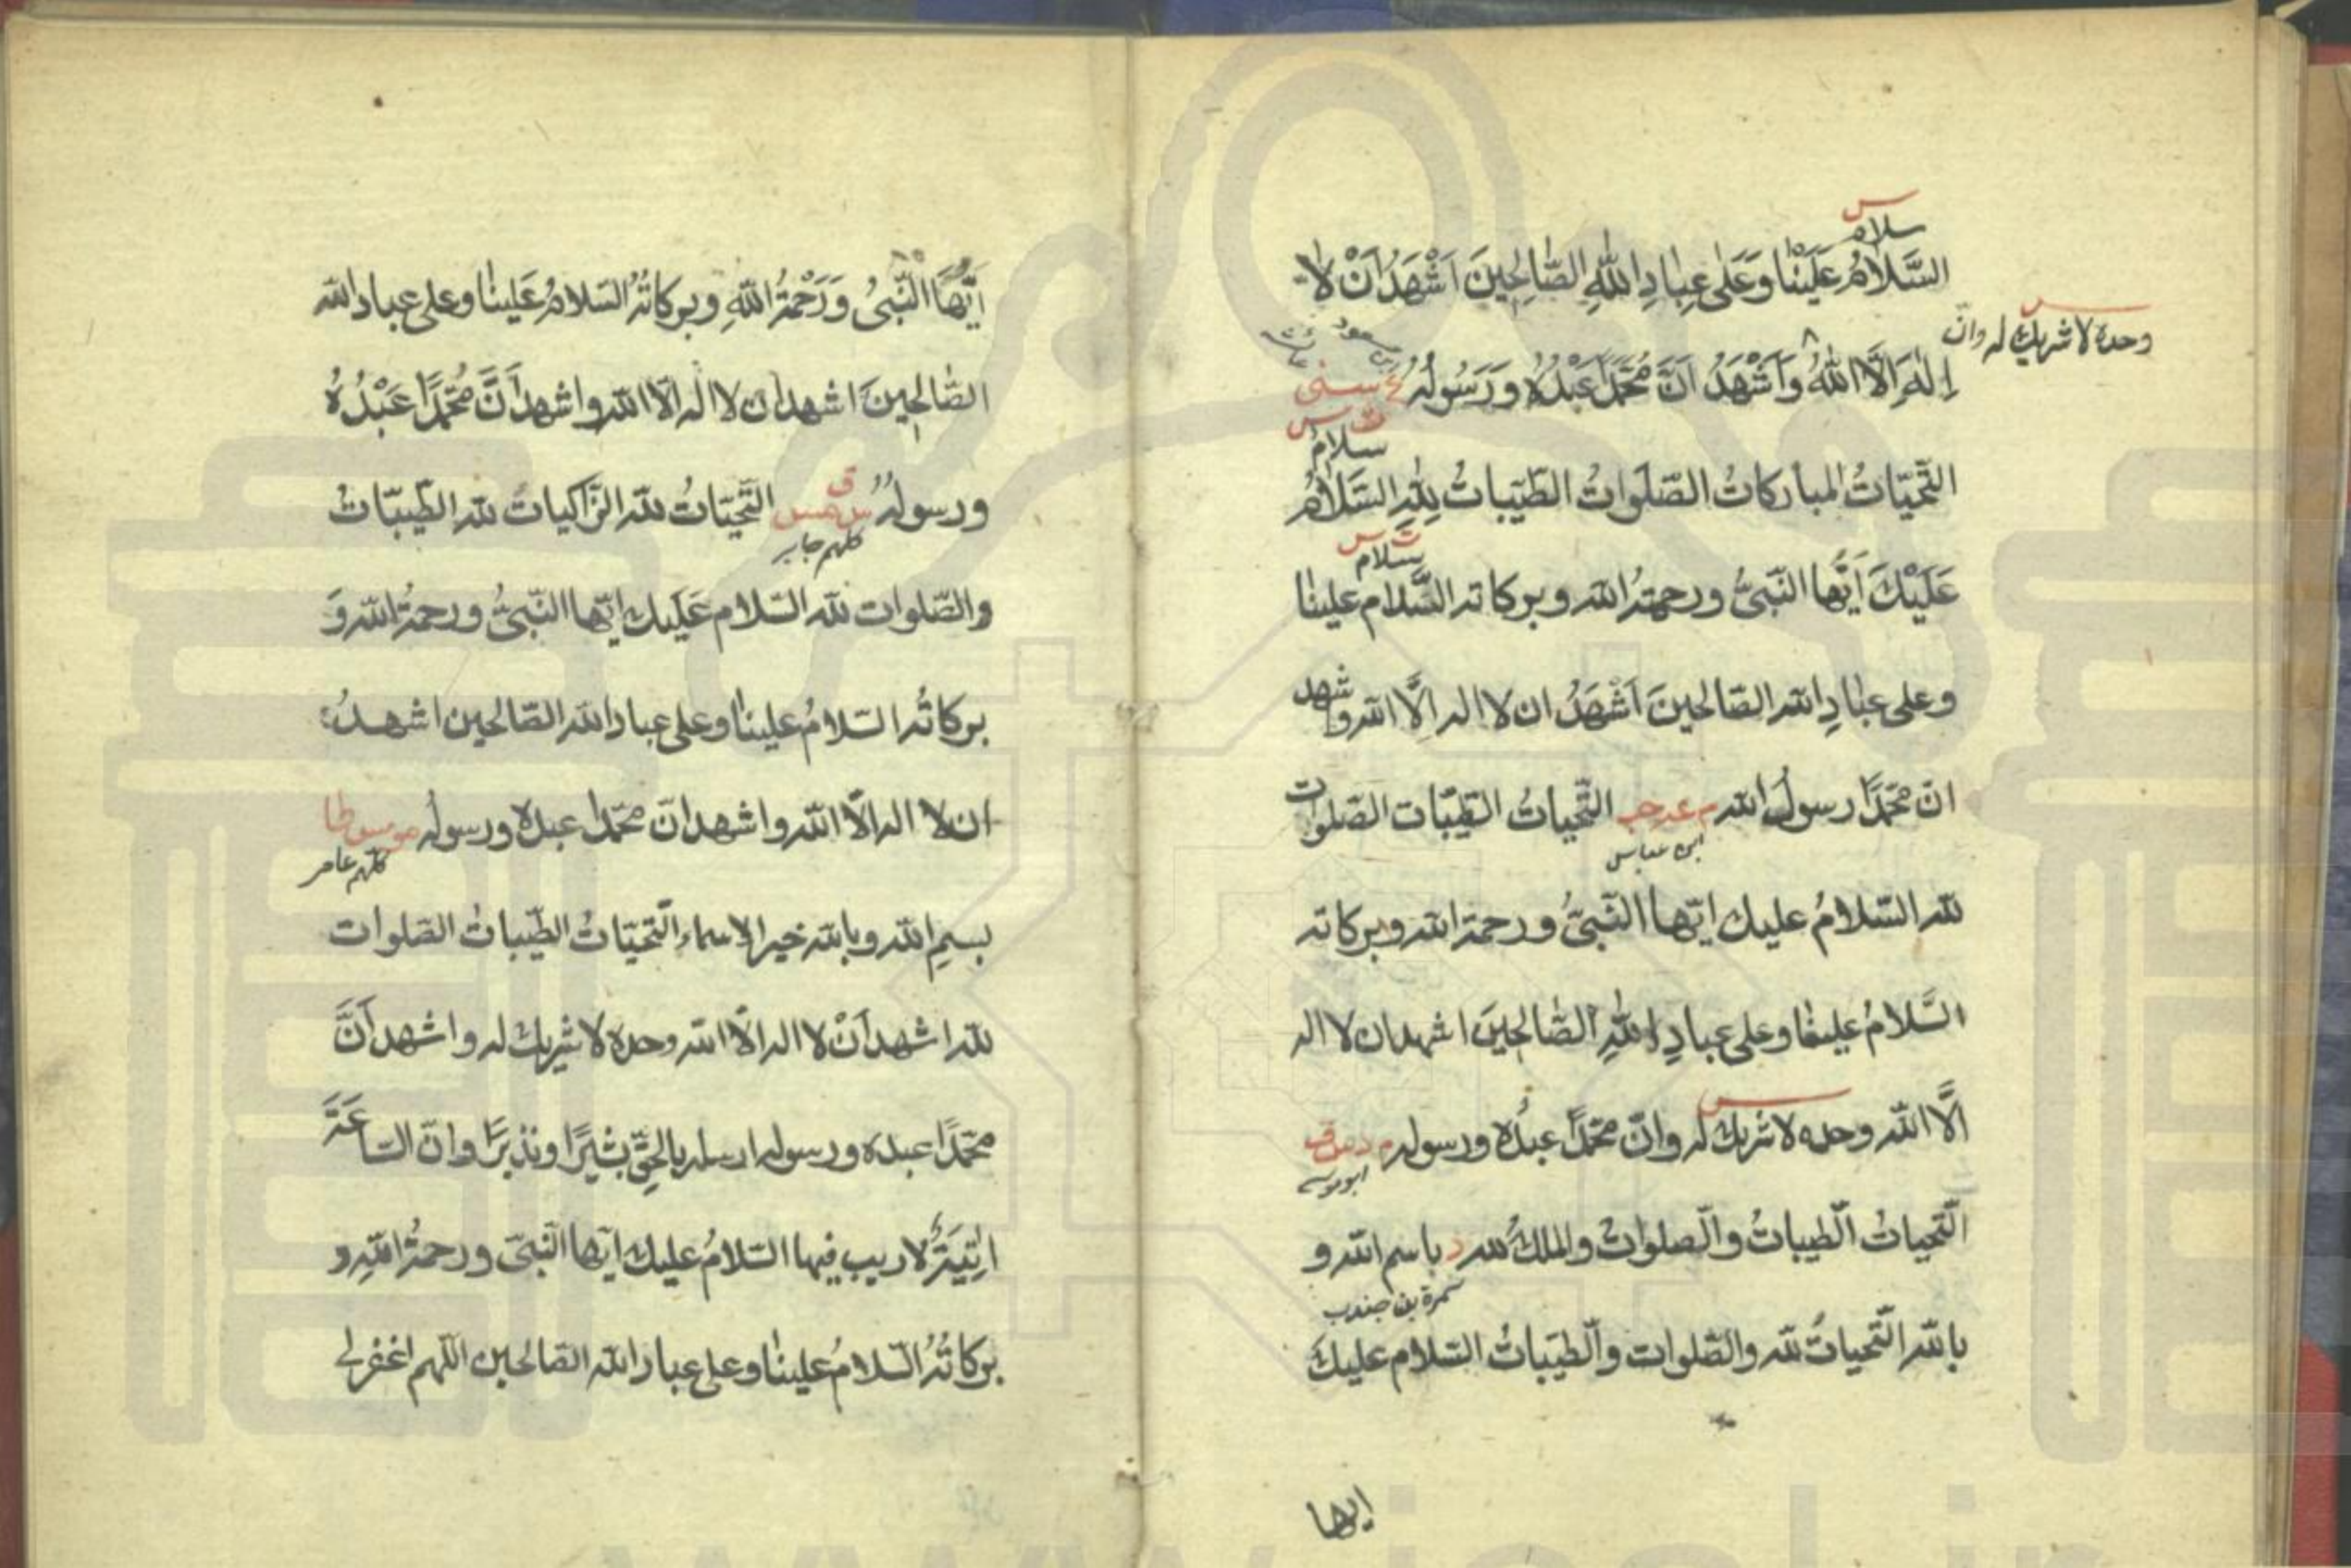 سلامٌ
السَّلَامُ عَلَيْنَا وَعَلٰى عِبَادِ اللهِ الصَّالِحِينَ اَشْهَدُ اَنْ لَا
وحده لا شريك له وانّ
اِلٰهَ اِلَّا اللهُ وَاَشْهَدُ اَنَّ مُحَمَّدًا عَبْدُهُ وَرَسُولُهُ ع سنى
سلامٌ
التَّحِيّاتُ المباركاتُ الصَّلَواتُ الطَّيّباتُ لِلّٰهِ السَّلَامُ
سلام
عَلَيْكَ اَيُّهَا النَّبِىُّ ورحمةُ الله وبركاته السَّلام علينا
وعلى عبادِ الله الصّالحينَ اَشْهَدُ ان لا اله اِلَّا الله واشهد
انّ محمّدًا رسولُ الله م عه حب التَّحياتُ الطّيّبات الصّلوات
ابن عباس
لله السّلامُ عليك ايّها النَّبىُّ ورحمة الله وبركاته
السَّلامُ علينا وعلى عبادِ اللهِ الصّالحينَ اشهد ان لا اله
الَّا الله وحده لا شريك له وانّ محمّدًا عبدُه ورسوله م د س ق
ابو موسى
التّحياتُ الطّيباتُ والصّلواتُ والملكُ لله د باسم الله و
سمرة بن جندب
بالله التّحياتُ لله والصّلوات والطّيباتُ السّلام عليكَ
ايها
اَيُّهَا النَّبىُّ وَرَحْمَةُ اللهِ وبركاتُهُ السّلامُ عَلينا وعلى عباد الله
الصّالحينَ اشهد ان لا اله الّا الله واشهد اَنَّ مُحَمَّدًا عَبْدُهُ
ق
ورسولُهُ س مس التَّحيّاتُ لله الزّاكيات لله الطّيّباتُ
كلهم جابر
والصّلوات لله السّلام عَلَيك ايّها النّبىُّ ورحمةُ الله وَ
بركاتُه السّلامُ علينا وعلى عباد الله الصّالحين اشهدُ
ان لا اله الّا الله واشهد انّ محمّدا عبده ورسوله مو مس طا
كلهم عامر
بسمِ الله وبالله خير الاسماء التّحيّاتُ الطّيباتُ الصّلوات
لله اشهد اَنْ لا اله الّا الله وحده لا شريك له واشهد اَنَّ
محمّدًا عبده ورسوله ارسله بالحقِّ بشيرًا ونذيرًا وانّ السّاعَةَ
اتِيَةٌ لا ريب فيها السّلامُ عليك ايّها النّبىّ ورحمةُ اللهِ و
بركاتُهُ السّلامُ علينا وعلى عباد الله الصّالحين اللّهم اغفرلى